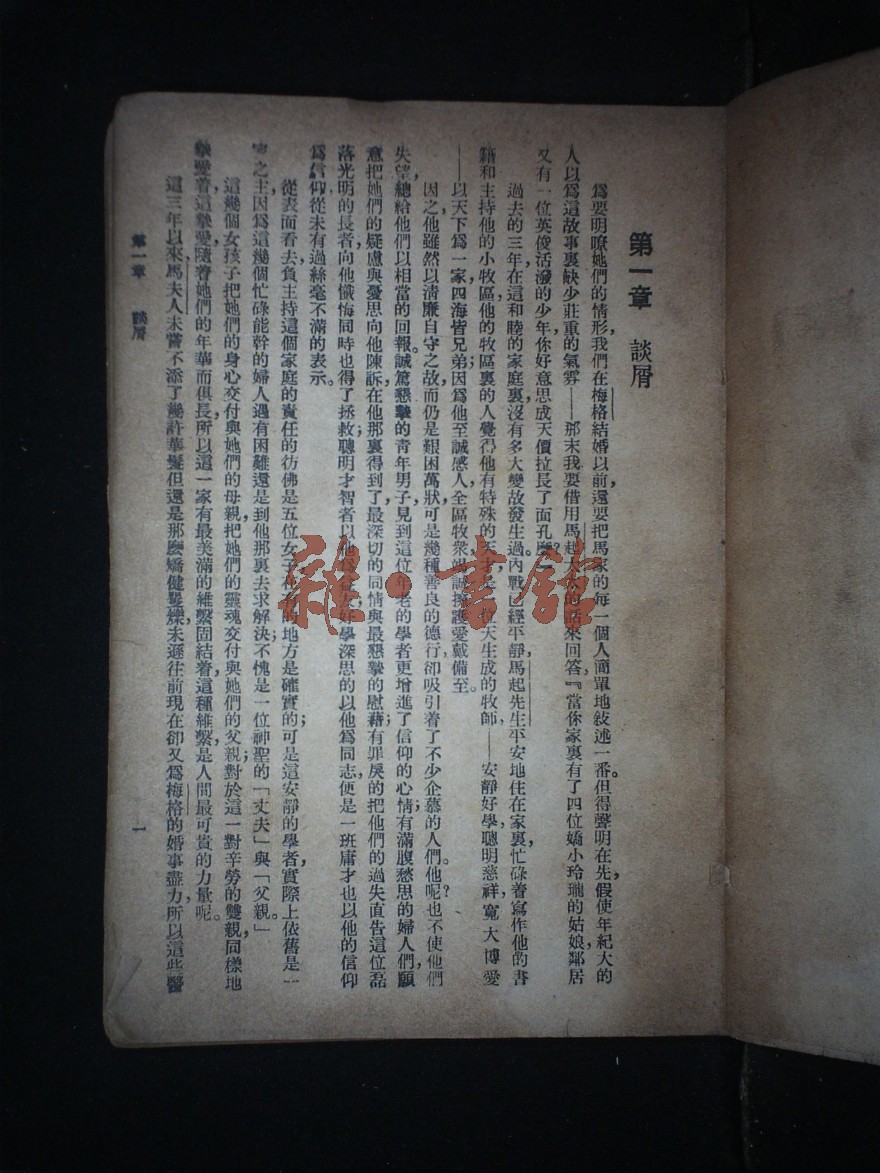 第一章　談屑
爲要明瞭她們的情形，我們在梅格結婚以前，還要把馬家的每一個人簡單地敍述一番。但得聲明在先，假使年紀大的
人以爲這故事裏缺少莊重的氣雰——那末我要借用馬起太太的話來回答，『當你家裏有了四位嬌小玲瓏的姑娘，鄰居
又有一位英俊活潑的少年，你好意思成天價拉長了面孔麽？
過去的三年，在這和睦的家庭裏，沒有多大變故發生過。內戰已經平靜，馬起先生平安地住在家裏，忙碌着寫作他的書
籍和主持他的小牧區；他的牧區裏的人覺得他有特殊的天才，是一位天生成的牧師——安靜好學，聰明慈祥，寬大博愛
——以天下爲一家，四海皆兄弟；因爲他至誠感人，全區牧衆竭誠擁護愛戴備至。
因之，他雖然以清廉自守之故，而仍是艱困萬狀，可是幾種善良的德行，卻吸引着了不少企慕的人們。他呢？也不使他們
失望，總給他們以相當的回報。誠篤懇摯的青年男子，見到這位年老的學者，更增進了信仰的心情；有滿腹愁思的婦人們，願
意把她們的疑慮與憂思向他陳訴，在他那裏得到了最深切的同情與最懇摯的慰藉；有罪戾的把他們的過失直告這位磊
落光明的長者，向他懺悔，同時也得了拯救；聰明才智者以他爲益友；好學深思的以他爲同志，便是一班庸才也以他的信仰
爲信仰，從未有過絲毫不滿的表示。
從表面看去，負主持這個家庭的責任的彷彿是五位女子，有的地方是確實的；可是這安靜的學者，實際上依舊是一
家之主，因爲這幾個忙碌能幹的婦人，遇有困難，還是到他那裏去求解決；不愧是一位神聖的「丈夫」與「父親。」
這幾個女孩子把她們的身心交付與她們的母親，把她們的靈魂交付與她們的父親；對於這一對辛勞的雙親，同樣地
摯愛着，這摯愛隨着她們的年華而俱長，所以這一家有最美滿的維繫固結着，這種維繫是人間最可貴的力量呢。
這三年以來，馬夫人未嘗不添了幾許華髮，但還是那麽矯健矍爍，未遜往前，現在卻又爲梅格的婚事盡力，所以這些醫
第一章　談屑　一
雜·書館